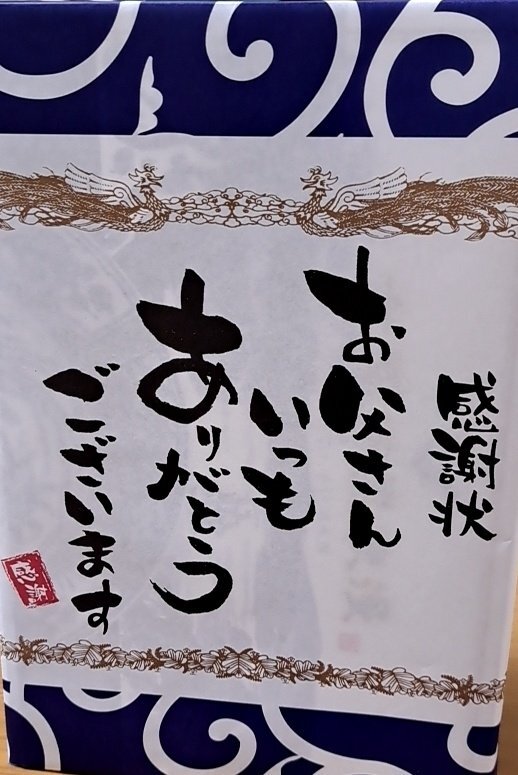 感謝状
お父さん
いつも
ありがとう
ございます